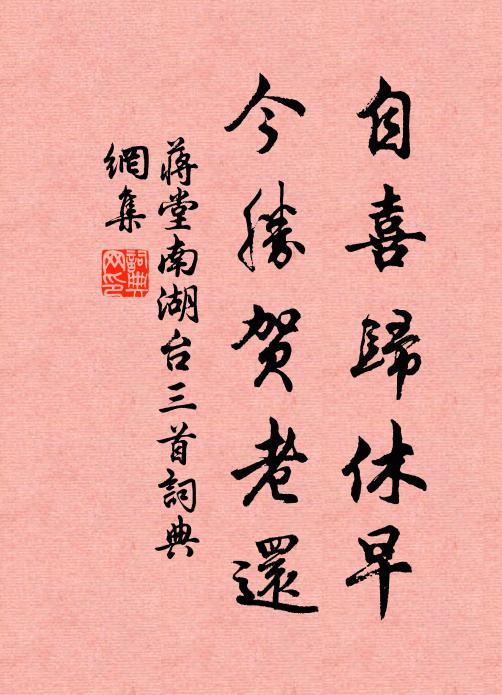 自喜歸休早
今勝賀老還
蔣堂南湖台三首詞典
網集
詞典
网印